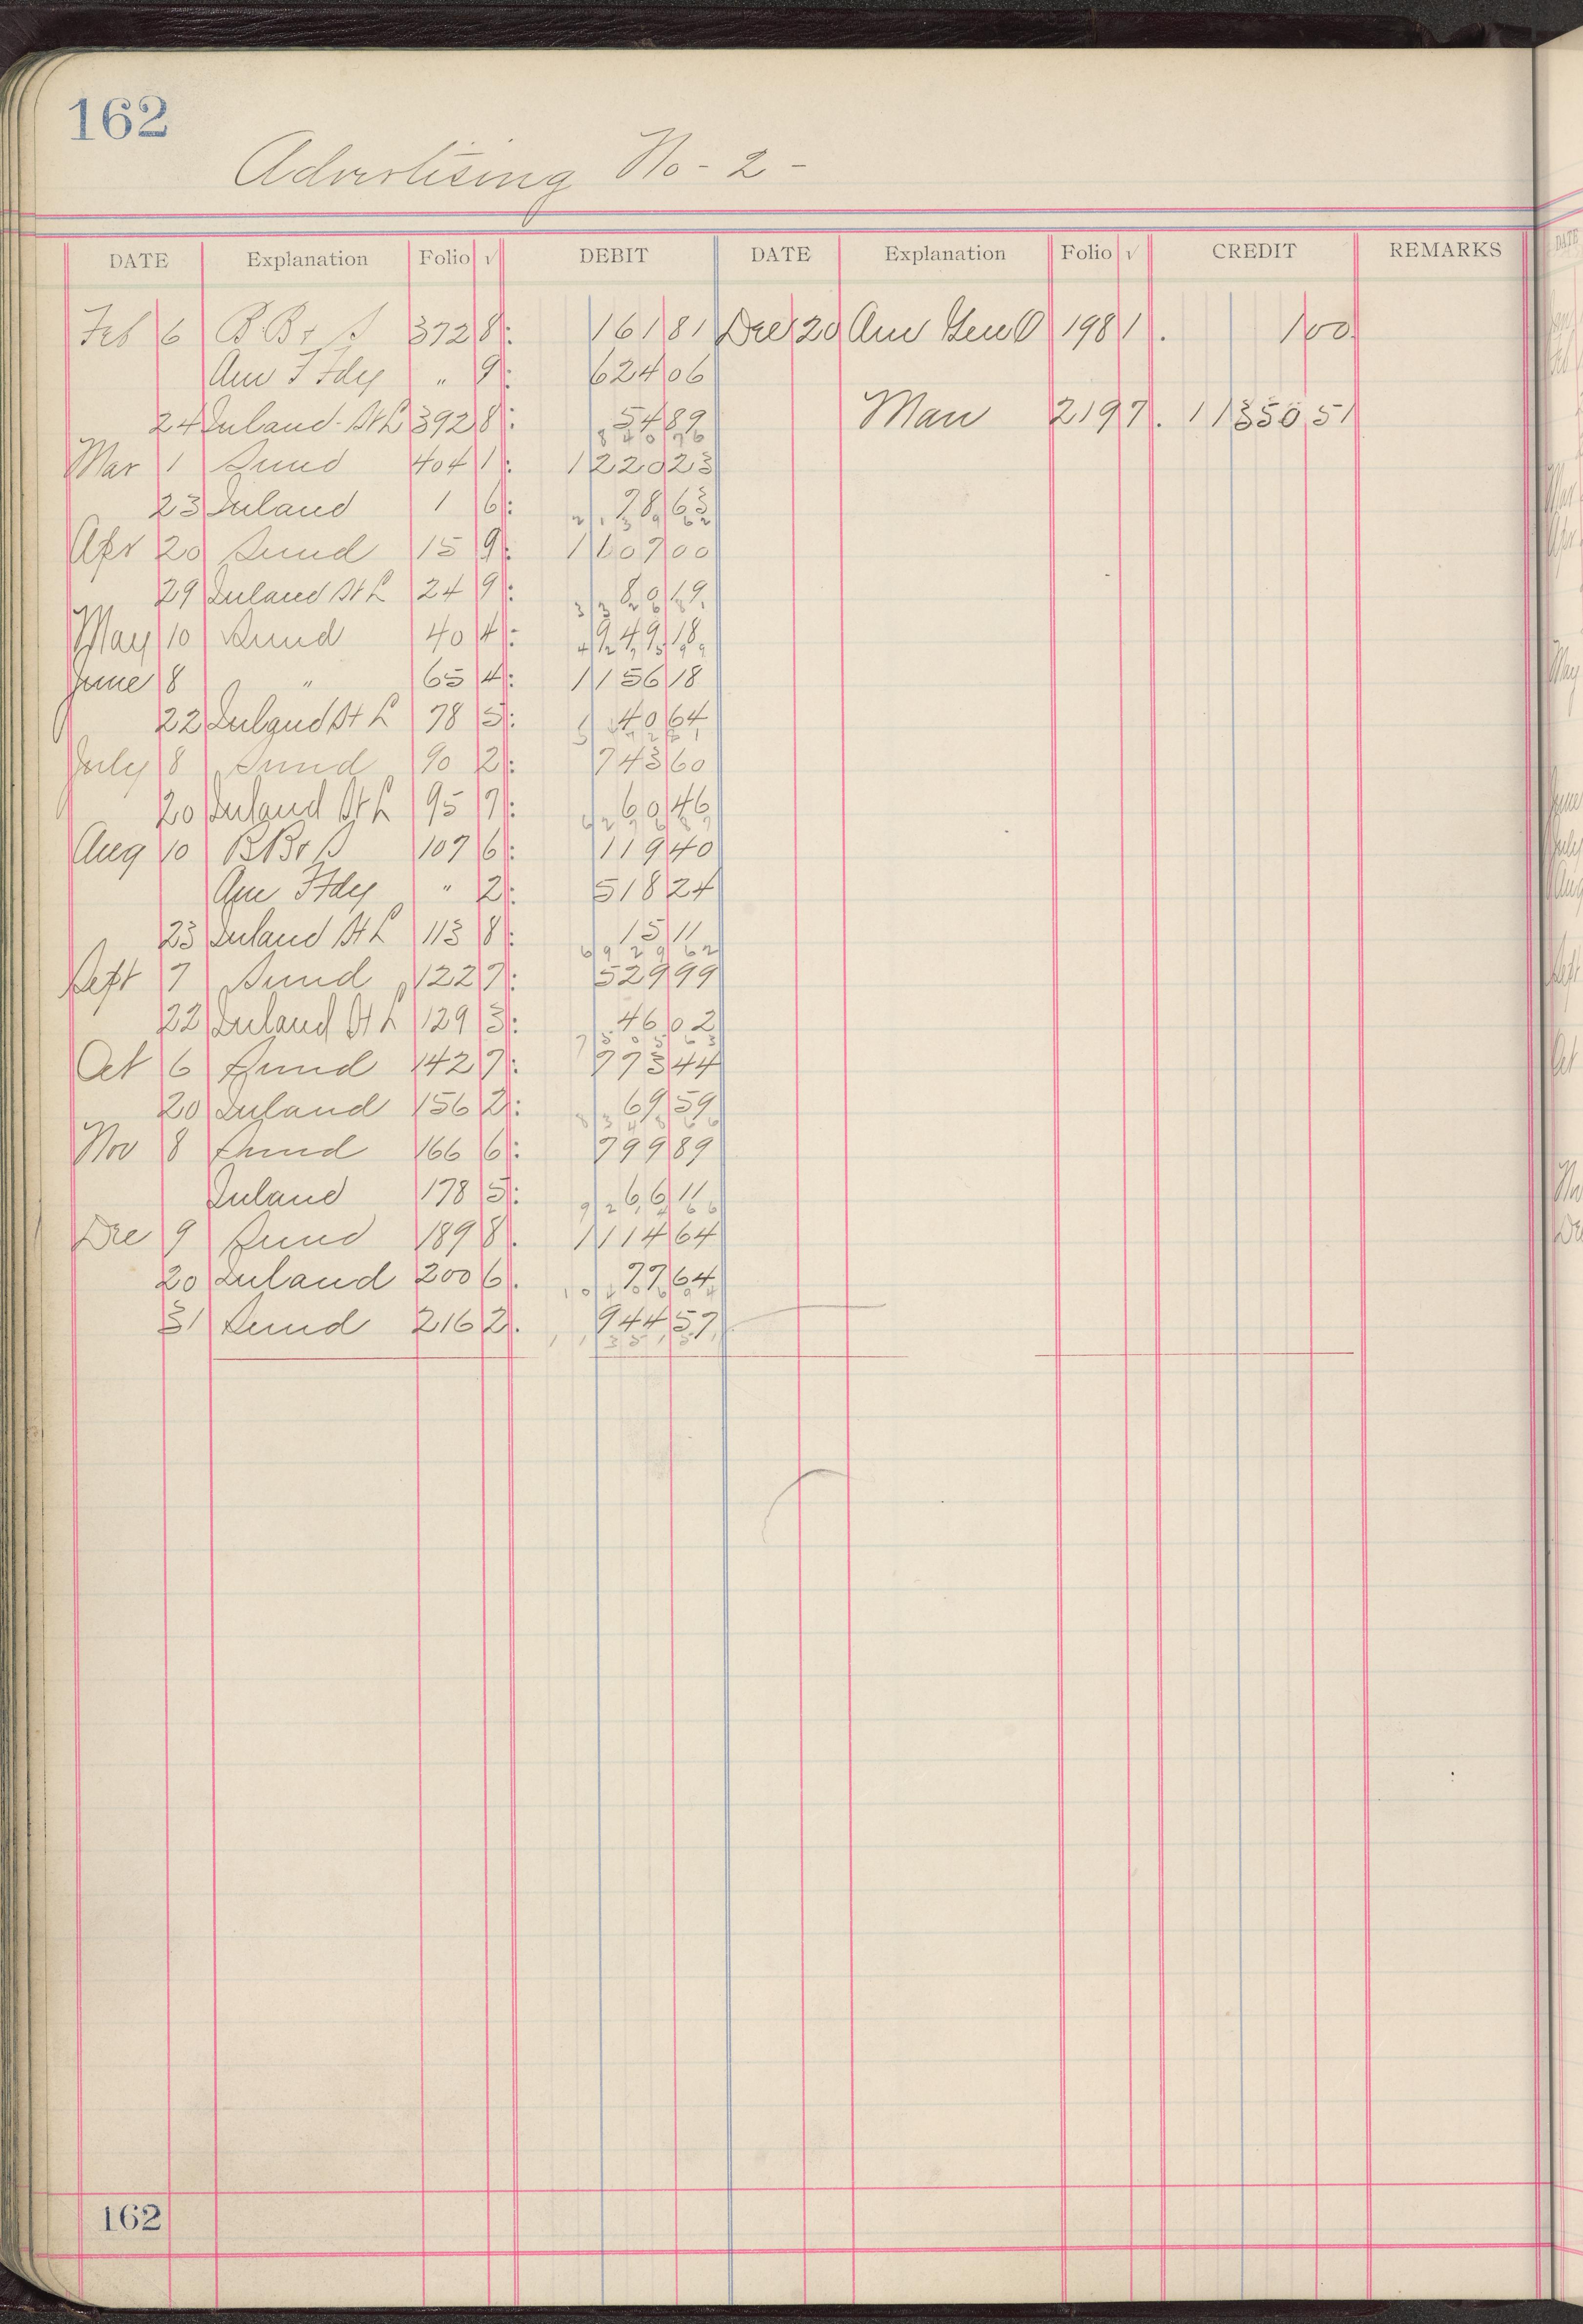 162
Advertising No - 2 -
DATE Explanation Folio √ DEBIT DATE Explanation Folio √ CREDIT REMARKS
Feb 6 B. Br & S 372 8 161 81 Dec 20 Am Genl 198 1 1 00
Am T Fdy " 9 624 06
24 Inland St L 392 8 54 89 Man 219 7 11350 51
840 76
Mar 1 Sund 404 1 1220 23
23 Inland 1 6 78 63
Apr 20 Sund 15 9 1107 00
29 Inland St L 24 9 80 19
May 10 Sund 40 4 949 18
June 8 " 65 4 1156 18
22 Inland St L 78 5 40 64
July 8 Sund 90 2 743 60
20 Inland St L 95 7 60 46
Aug 10 B Br & S 107 6 119 40
Am Fdy " 2 518 24
23 Inland St L 113 8 15 11
6929 62
Sept 7 Sund 122 7 529 99
22 Inland St L 129 3 46 02
7505 63
Oct 6 Sund 142 7 773 44
20 Inland 156 2 69 59
8348 66
Nov 8 Sund 166 6 799 89
Inland 178 5 66 11
9214 66
Dec 9 Sund 189 8 1114 64
20 Inland 200 6 77 64
31 Sund 216 2 944 57
11351 51
162